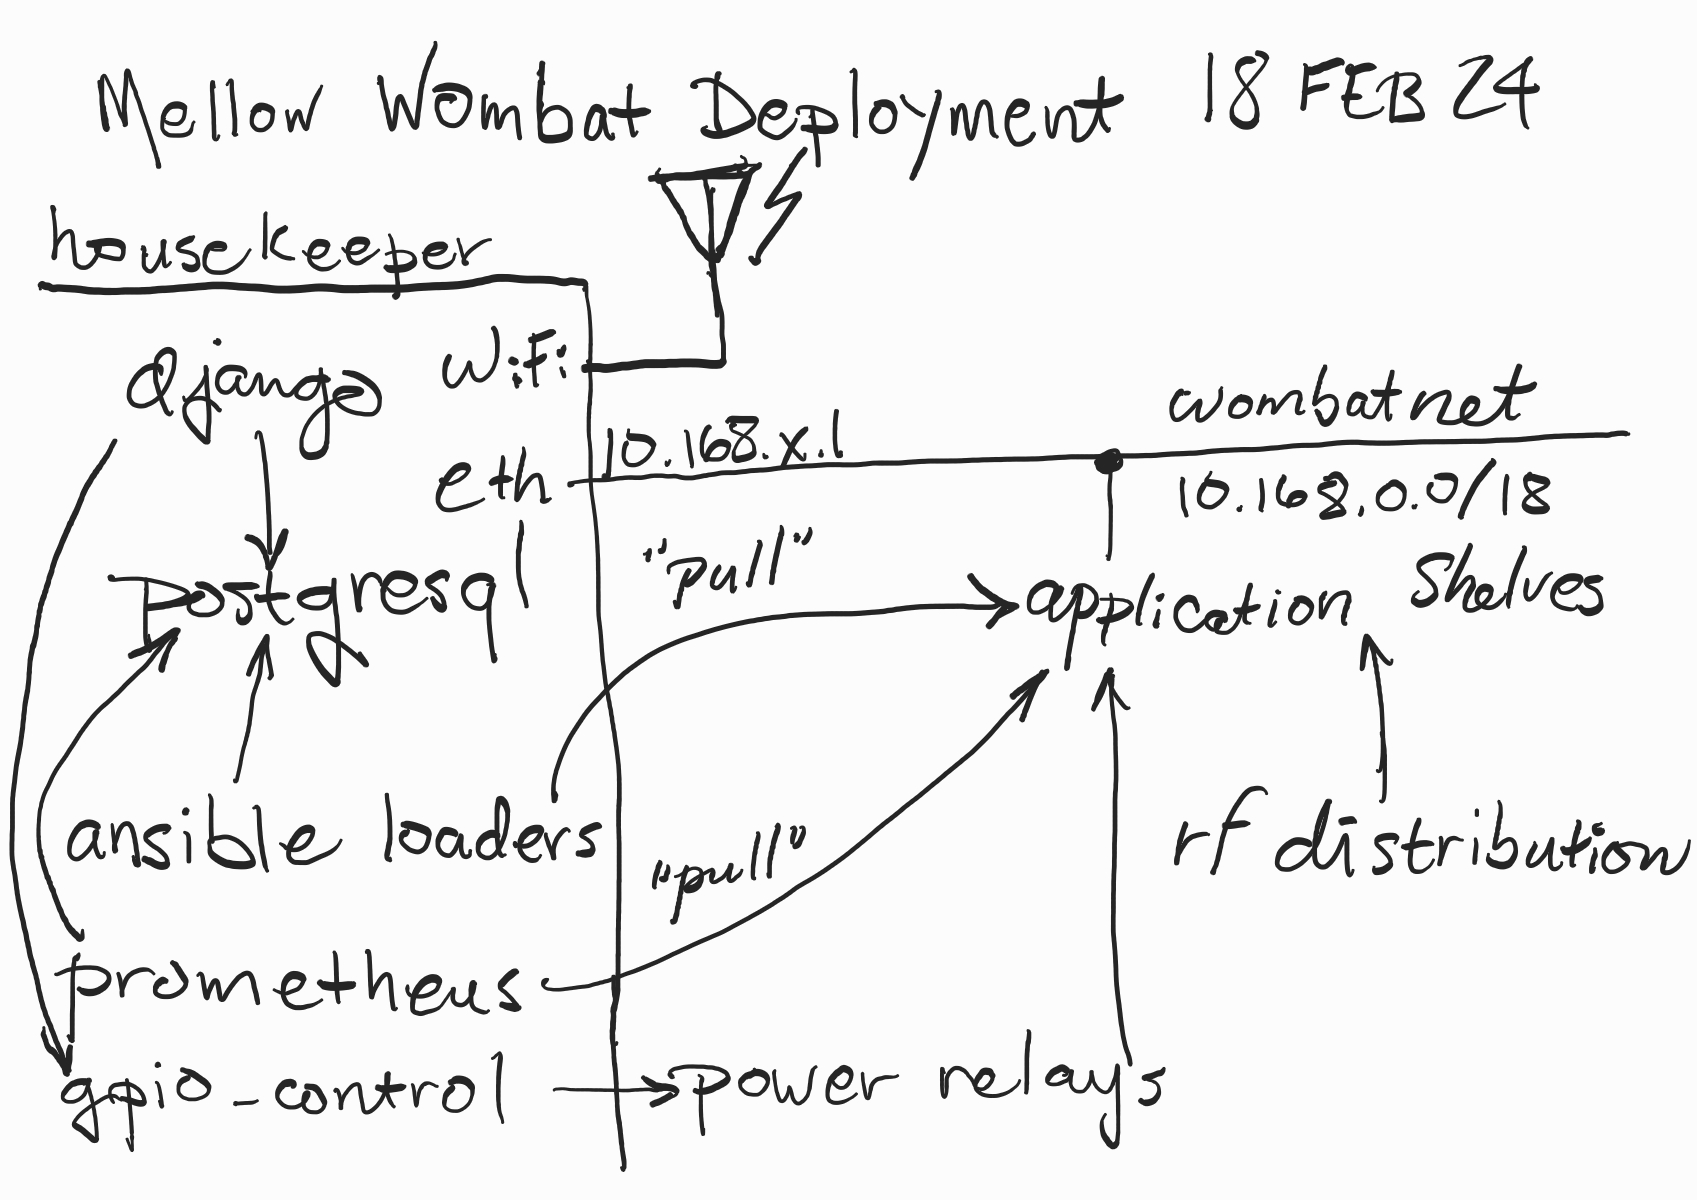 Mellow Wombat Deployment 18 FEB 24
housekeeper
django
WiFi
eth
10.168.x.1
wombatnet
10.168.0.0/18
postgresql
"pull"
application shelves
ansible loaders
"pull"
rf distribution
prometheus
gpio_control
power relays